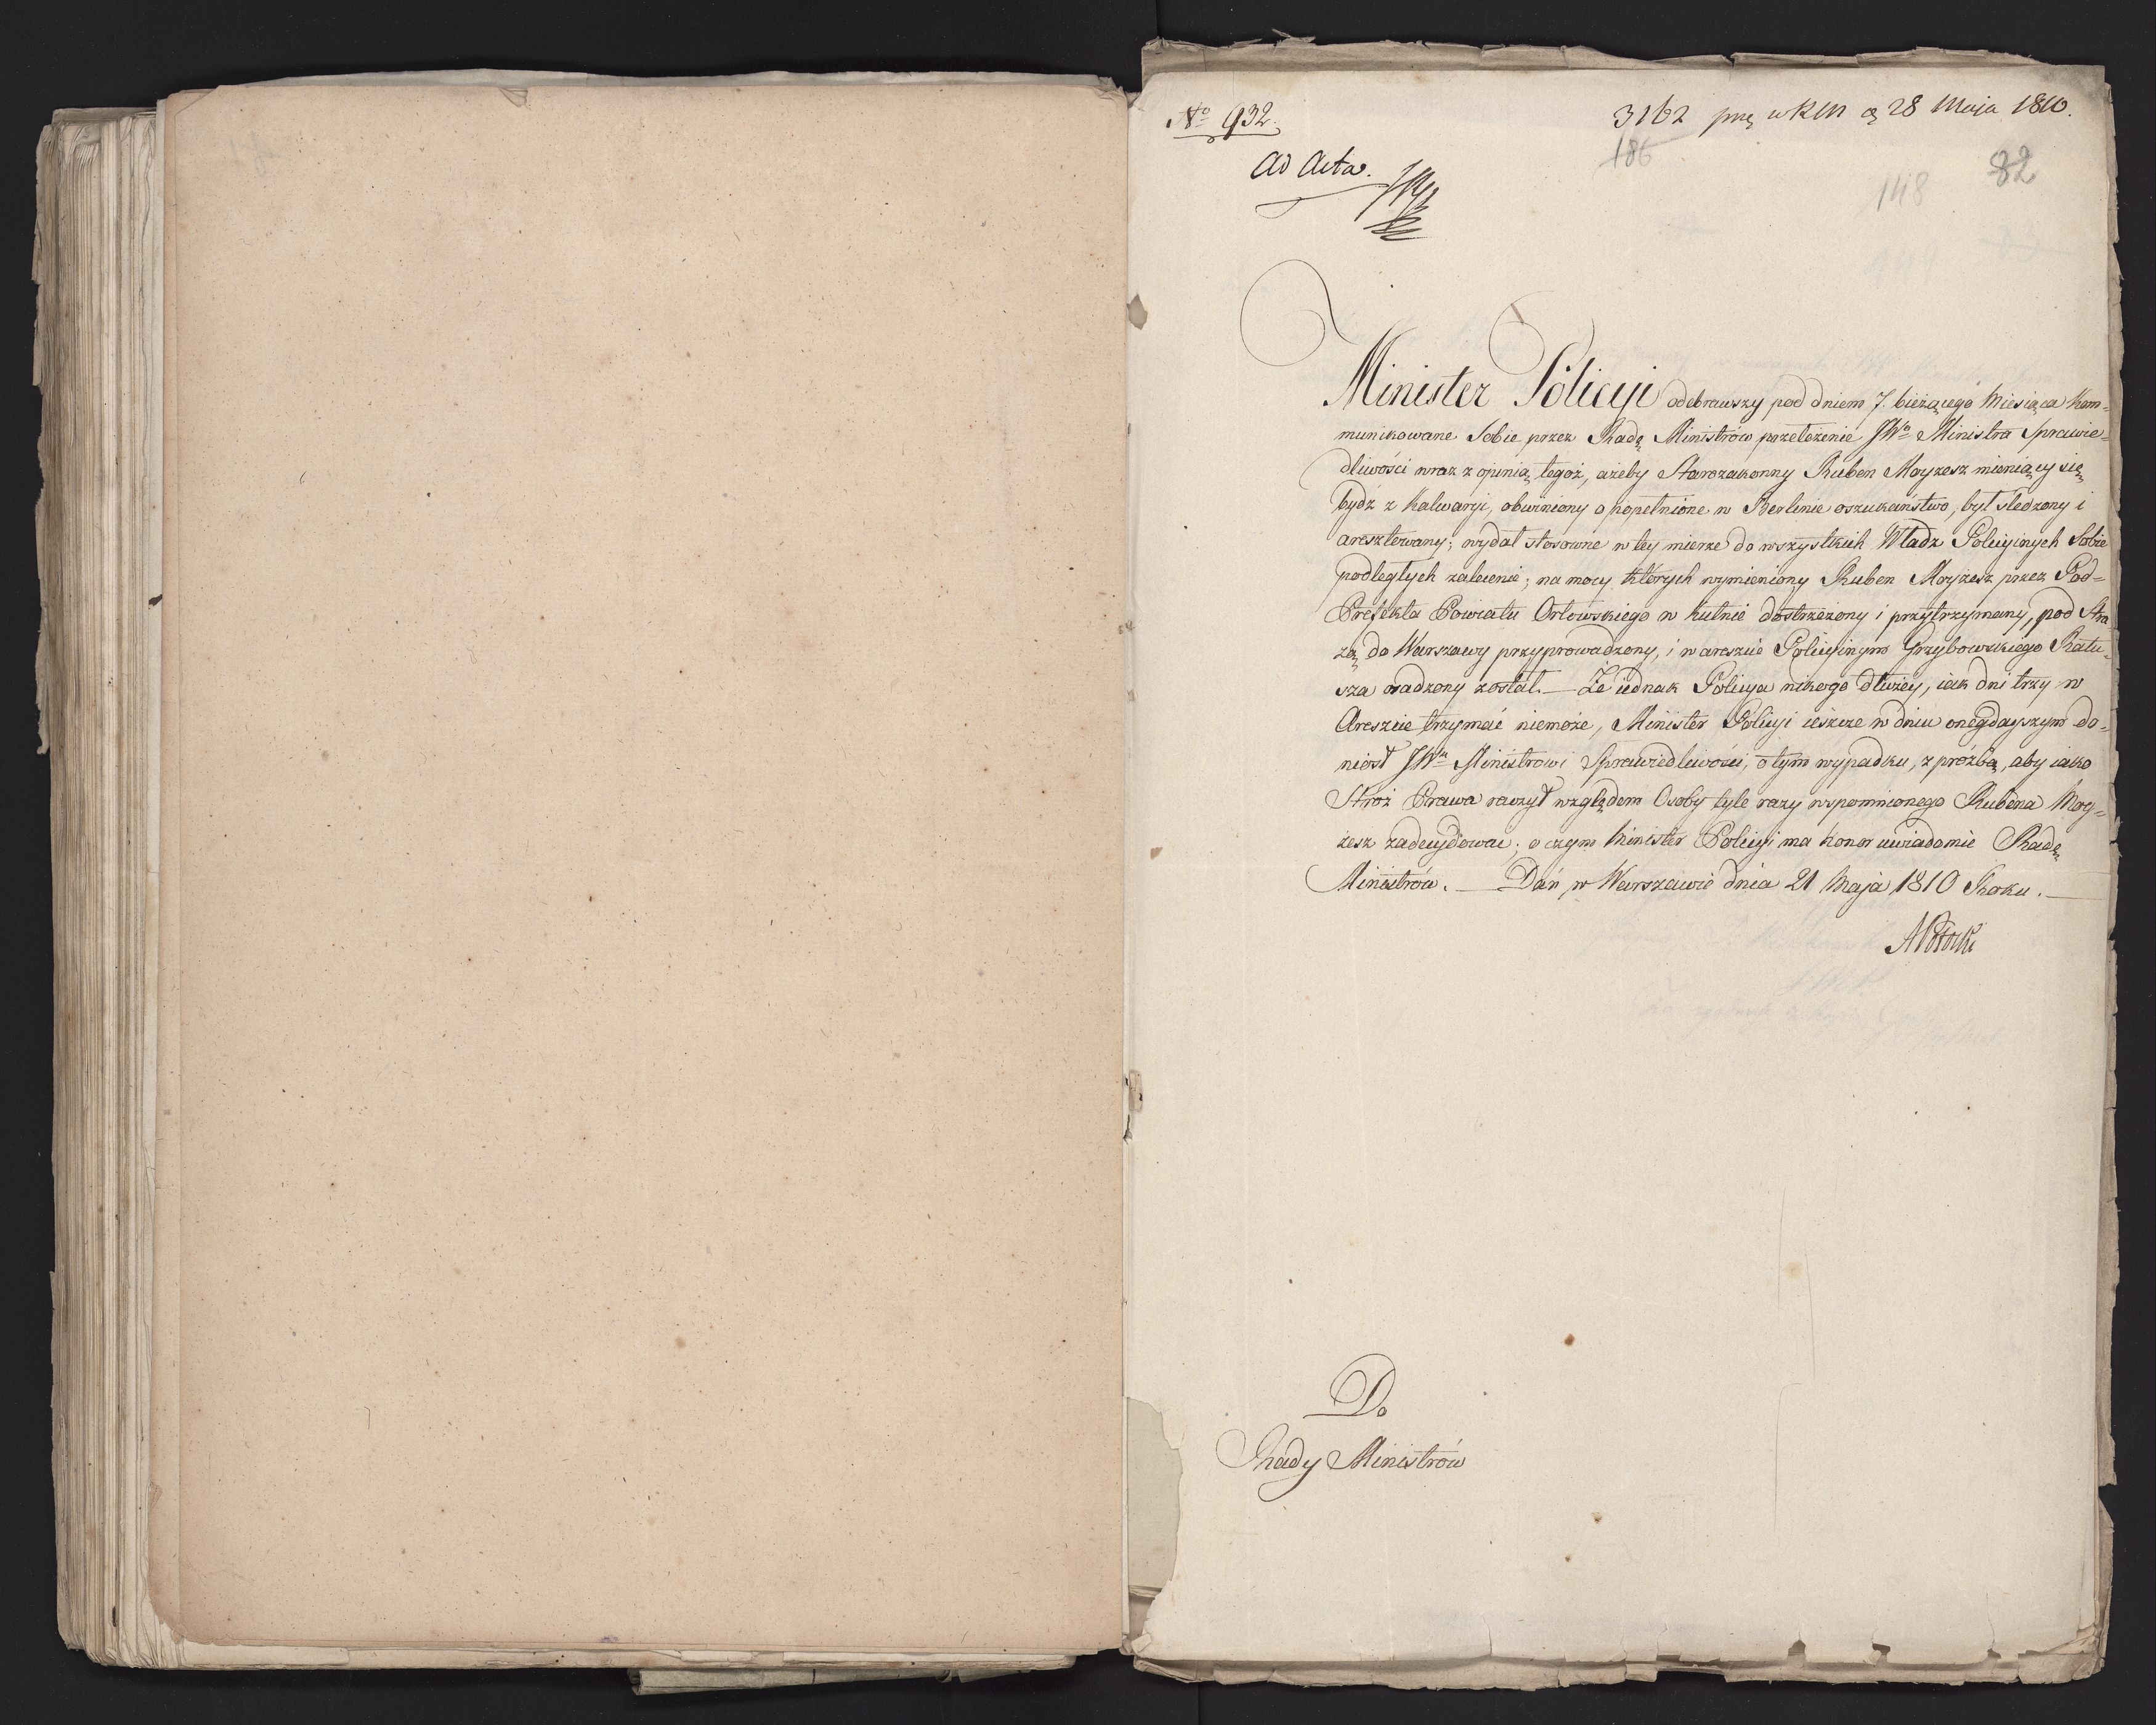 No 932.
3162 prę w RM d 28 Maja 1810.
186
Ad Acta.
148
82
Minister Policyi odebrawszy pod dniem 7. bieżącego Miesiąca kom=
munikowane Sobie przez Radę Ministrów przełożenie JWo Ministra Sprawie=
dliwości wraz z opinią tegoż, ażeby Starozakonny Ruben Moyzesz mieniący się
bydź z Kalwaryi, obwiniony o popełnione w Berlinie oszukaństwo, był śledzony i
aresztowany; wydał stosowne w tey mierze do wszystkich Władz Policyinych Sobie
podległych zalecenie; na mocy których wymieniony Ruben Moyżesz przez Pod=
Prefekta Powiatu Orłowskiego w Kutnie dostrzeżony i przytrzymany, pod Stra
żą do Warszawy przyprowadzony, i w areszcie Policyinym Grzybowskiego Ratu=
sza osadzony został. — Że iednak Policya nikogo dłużey, iak dni trzy w
Areszcie trzymać niemoże, Minister Policyi ieszcze w dniu onegdayszym do=
niosł JWu Ministrowi Sprawiedliwości, o tym wypadku, z proźbą, aby iako
Stroż Prawa raczył względem Osoby tyle razy wspomnionego Rubena Moy=
żesz zadecydować; o czym Minister Policyi ma honor uwiadomić Radę
Ministrów. — Dań w Warszawie dnia 21 Maja 1810 Roku. —
APotocki
Do
Rady Ministrów